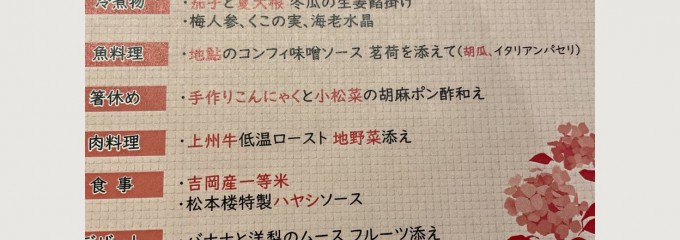 冷煮物
・茄子と夏大根 冬瓜の生姜餡掛け
・梅人参、くこの実、海老水晶
魚料理
・地鮎のコンフィ味噌ソース 茗荷を添えて(胡瓜、イタリアンパセリ)
箸休め
・手作りこんにゃくと小松菜の胡麻ポン酢和え
肉料理
・上州牛低温ロースト 地野菜添え
食事
・吉岡産一等米
・松本楼特製ハヤシソース
デザート
・バナナと洋梨のムース フルーツ添え